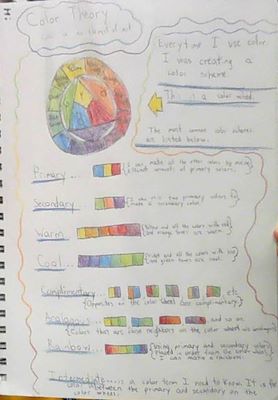 Color Theory
Everytime I use color
I was creating a
color scheme.
This is a color wheel.
The most common color schemes
are listed below.
Primary...
I can make all the other colors by mixing
different amounts of primary colors.
Secondary
I can mix two primary colors to
make a secondary color.
Warm...
Yellow and all the colors with red
and orange tones are warm
Cool...
Violet and all the colors with blue
and green tones are cool.
Complimentary
etc.
Opposites on the color wheel are complimentary
Analogous
and so on.
Colors that are close neighbors on the color wheel are analogous
Rainbow...
Using primary and secondary colors
in order from the color wheel
I can make a rainbow
Intermediate... is a color term I need to know. It is the
color between the primary and secondary on the
color wheel.